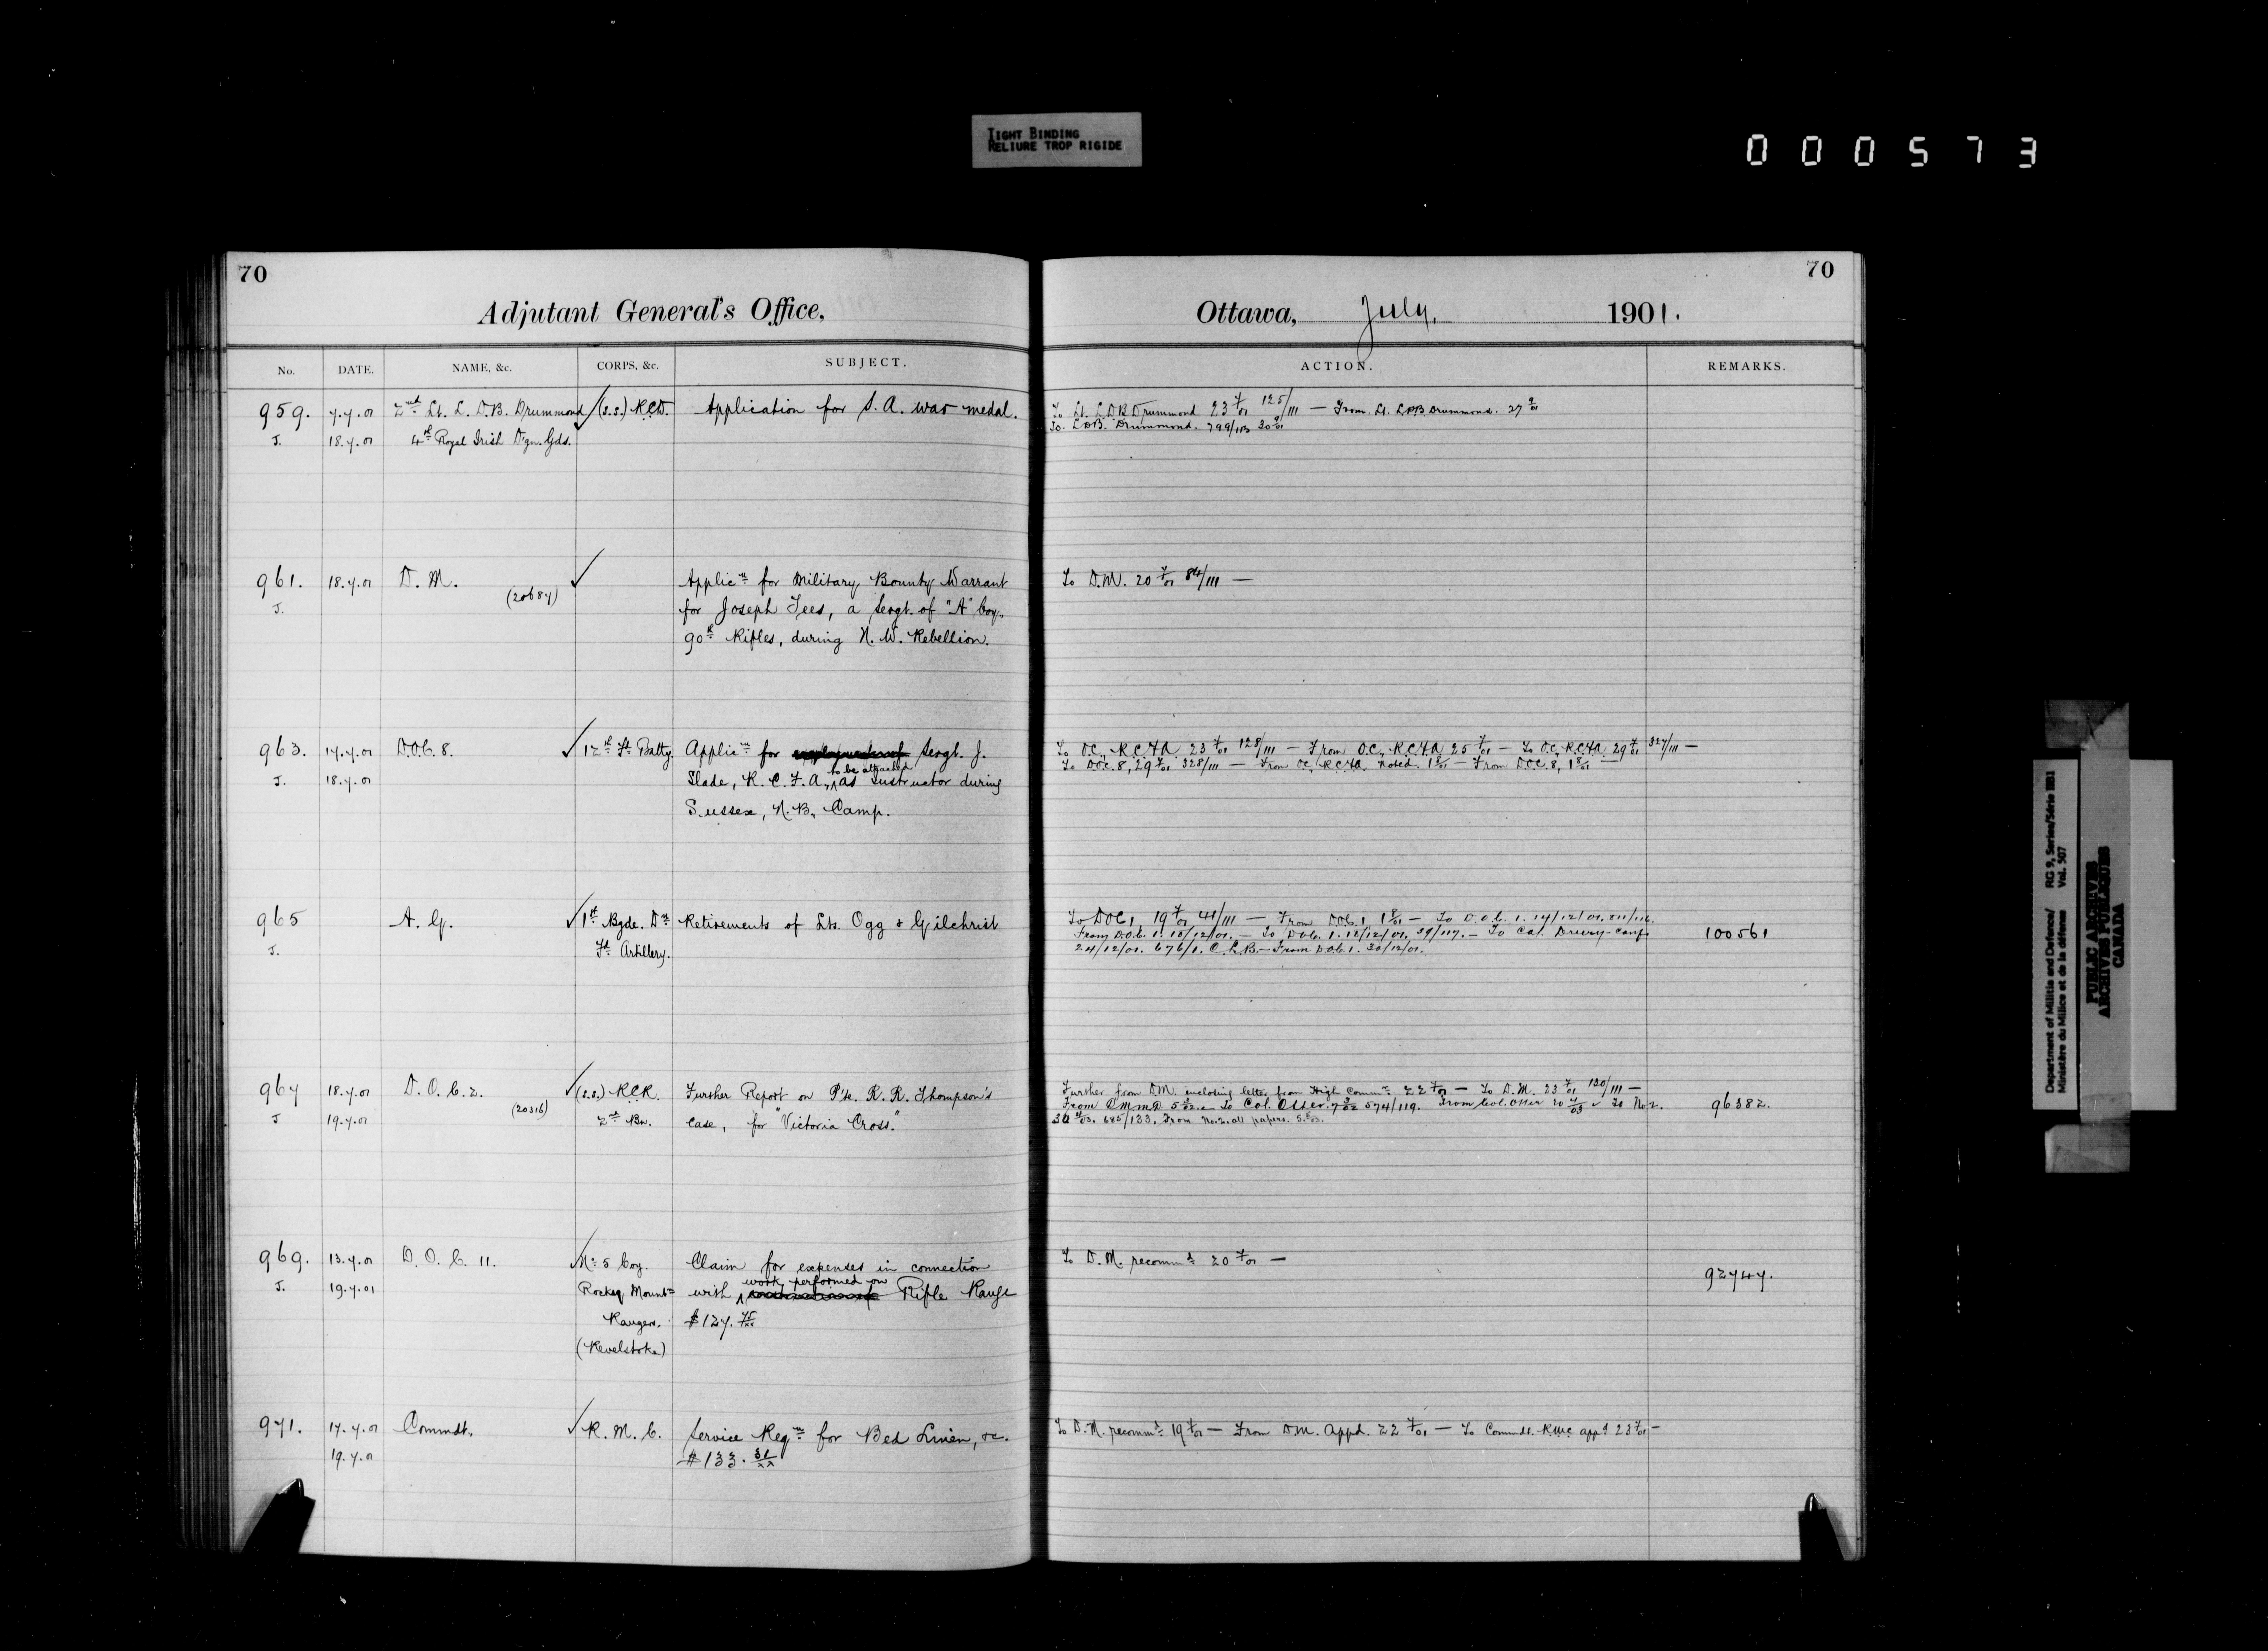 TIGHT BINDING
RELIURE TROP RIGIDE
000573
70
Adjutant General's Office,
No. DATE. NAME, &c. CORPS, &c. SUBJECT.
959. 7.7.01 2nd Lt. L. D.B. Drummond (S.S.) R.C.D. Application for S.A. war medal.
J. 18.7.01 4th Royal Irish Dgn. Gds.
961. 18.7.01 D.M. Applicn for Military Bounty Warrant
J. (20687) for Joseph Tees, a Sergt. of "A" Coy.,
90th Rifles, during N.W. Rebellion.
963. 17.7.01 D.O.C. 8. 12th Fd. Batty. Applicn for Sergt. J.
J. 18.7.01 Slade, R.C.F.A., to be attached as Instructor during
Sussex, N.B., Camp.
965 A.G. 1st Bgde. Dn Retirements of Lts. Ogg & Gilchrist
J. Fd. Artillery.
967 18.7.01 D.O.C. 2. (S.S.) R.C.R. Further Report on Pte. R.R. Thompson's
J 19.7.01 (20316) 2nd Bn. case, for "Victoria Cross."
969. 13.7.01 D.O.C. 11. No 5 Coy. Claim for expenses in connection
J. 19.7.01 Rocky Mountn with work performed on Rifle Range
Rangers. $127.75/xx
(Revelstoke)
971. 17.7.01 Commdt. R.M.C. Service Reqn for Bed Linen, &c.
19.7.01 $133.31/xx
70
Ottawa, July, 1901.
ACTION. REMARKS.
To Lt. L D B Drummond 23 7/01 125/111 — From Lt. L.D.B. Drummond. 27 9/01
To L.D.B. Drummond. 799/113 30 9/01
To D.M. 20 7/01 84/111 —
To O.C., R.C.H.A 23 7/01 128/111 — From O.C., R.C.H.A 25 7/01 — To O.C., R.C.H.A 29 7/01 327/111 —
To D.O.C. 8, 29 7/01 328/111 — From O.C., R.C.H.A. noted. 1 8/01 — From D.O.C. 8, 1 8/01
To DOC 1, 19 7/01 41/111 — From D.O.C. 1 1 8/01 — To D.O.C. 1. 14/12/01. 811/116.
From D.O.C. 1. 18/12/01. — To D.O.C. 1. 18/12/01. 39/117. — To Col. Drury 100561
24/12/01. 676/1. From D.O.C. 1. 30/12/01.
Further from D.M. enclosing letter from High Commr 22 7/01 — To D.M. 23 7/01 130/111 —
From To Col. Otter. 574/119. From Col. Otter To No 2. 96382.
685/133. From No. 2. all papers.
To D.M. recommd 20 7/01 —
92747.
To D.M. recommd 19 7/01 — From D.M. Appd. 22 7/01 — To Commdt. RMC appd 23 7/01 —
Department of Militia and Defence/ RG 9, Series/Série IIB1
Ministère du Milice et de la défense Vol. 507
PUBLIC ARCHIVES
ARCHIVES PUBLIQUES
CANADA